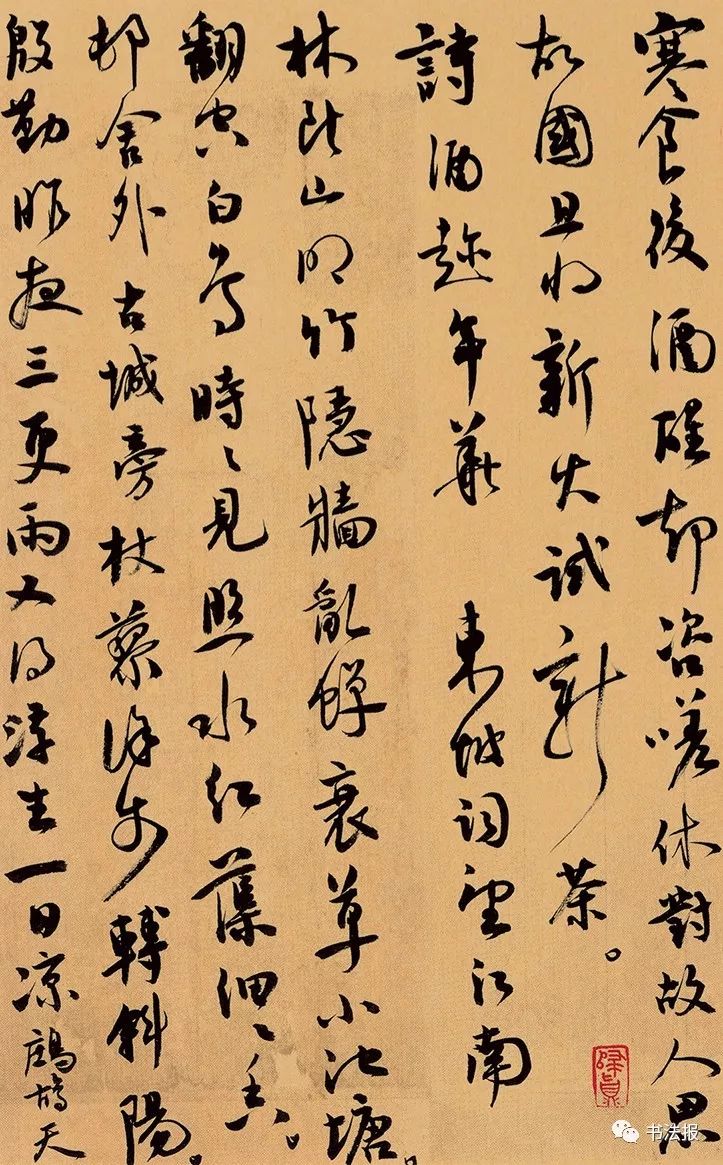 寒食後酒醒却咨嗟休對故人思
故國且將新火試新茶。
詩酒趁年華 東坡詞望江南
林斷山明竹隱牆亂蟬衰草小池塘。
翻空白鳥時々見照水紅蕖細々香。
邨舍外古城旁杖藜徐步轉斜陽。
殷勤昨夜三更雨又得浮生一日凉鷓鴣天
书法报